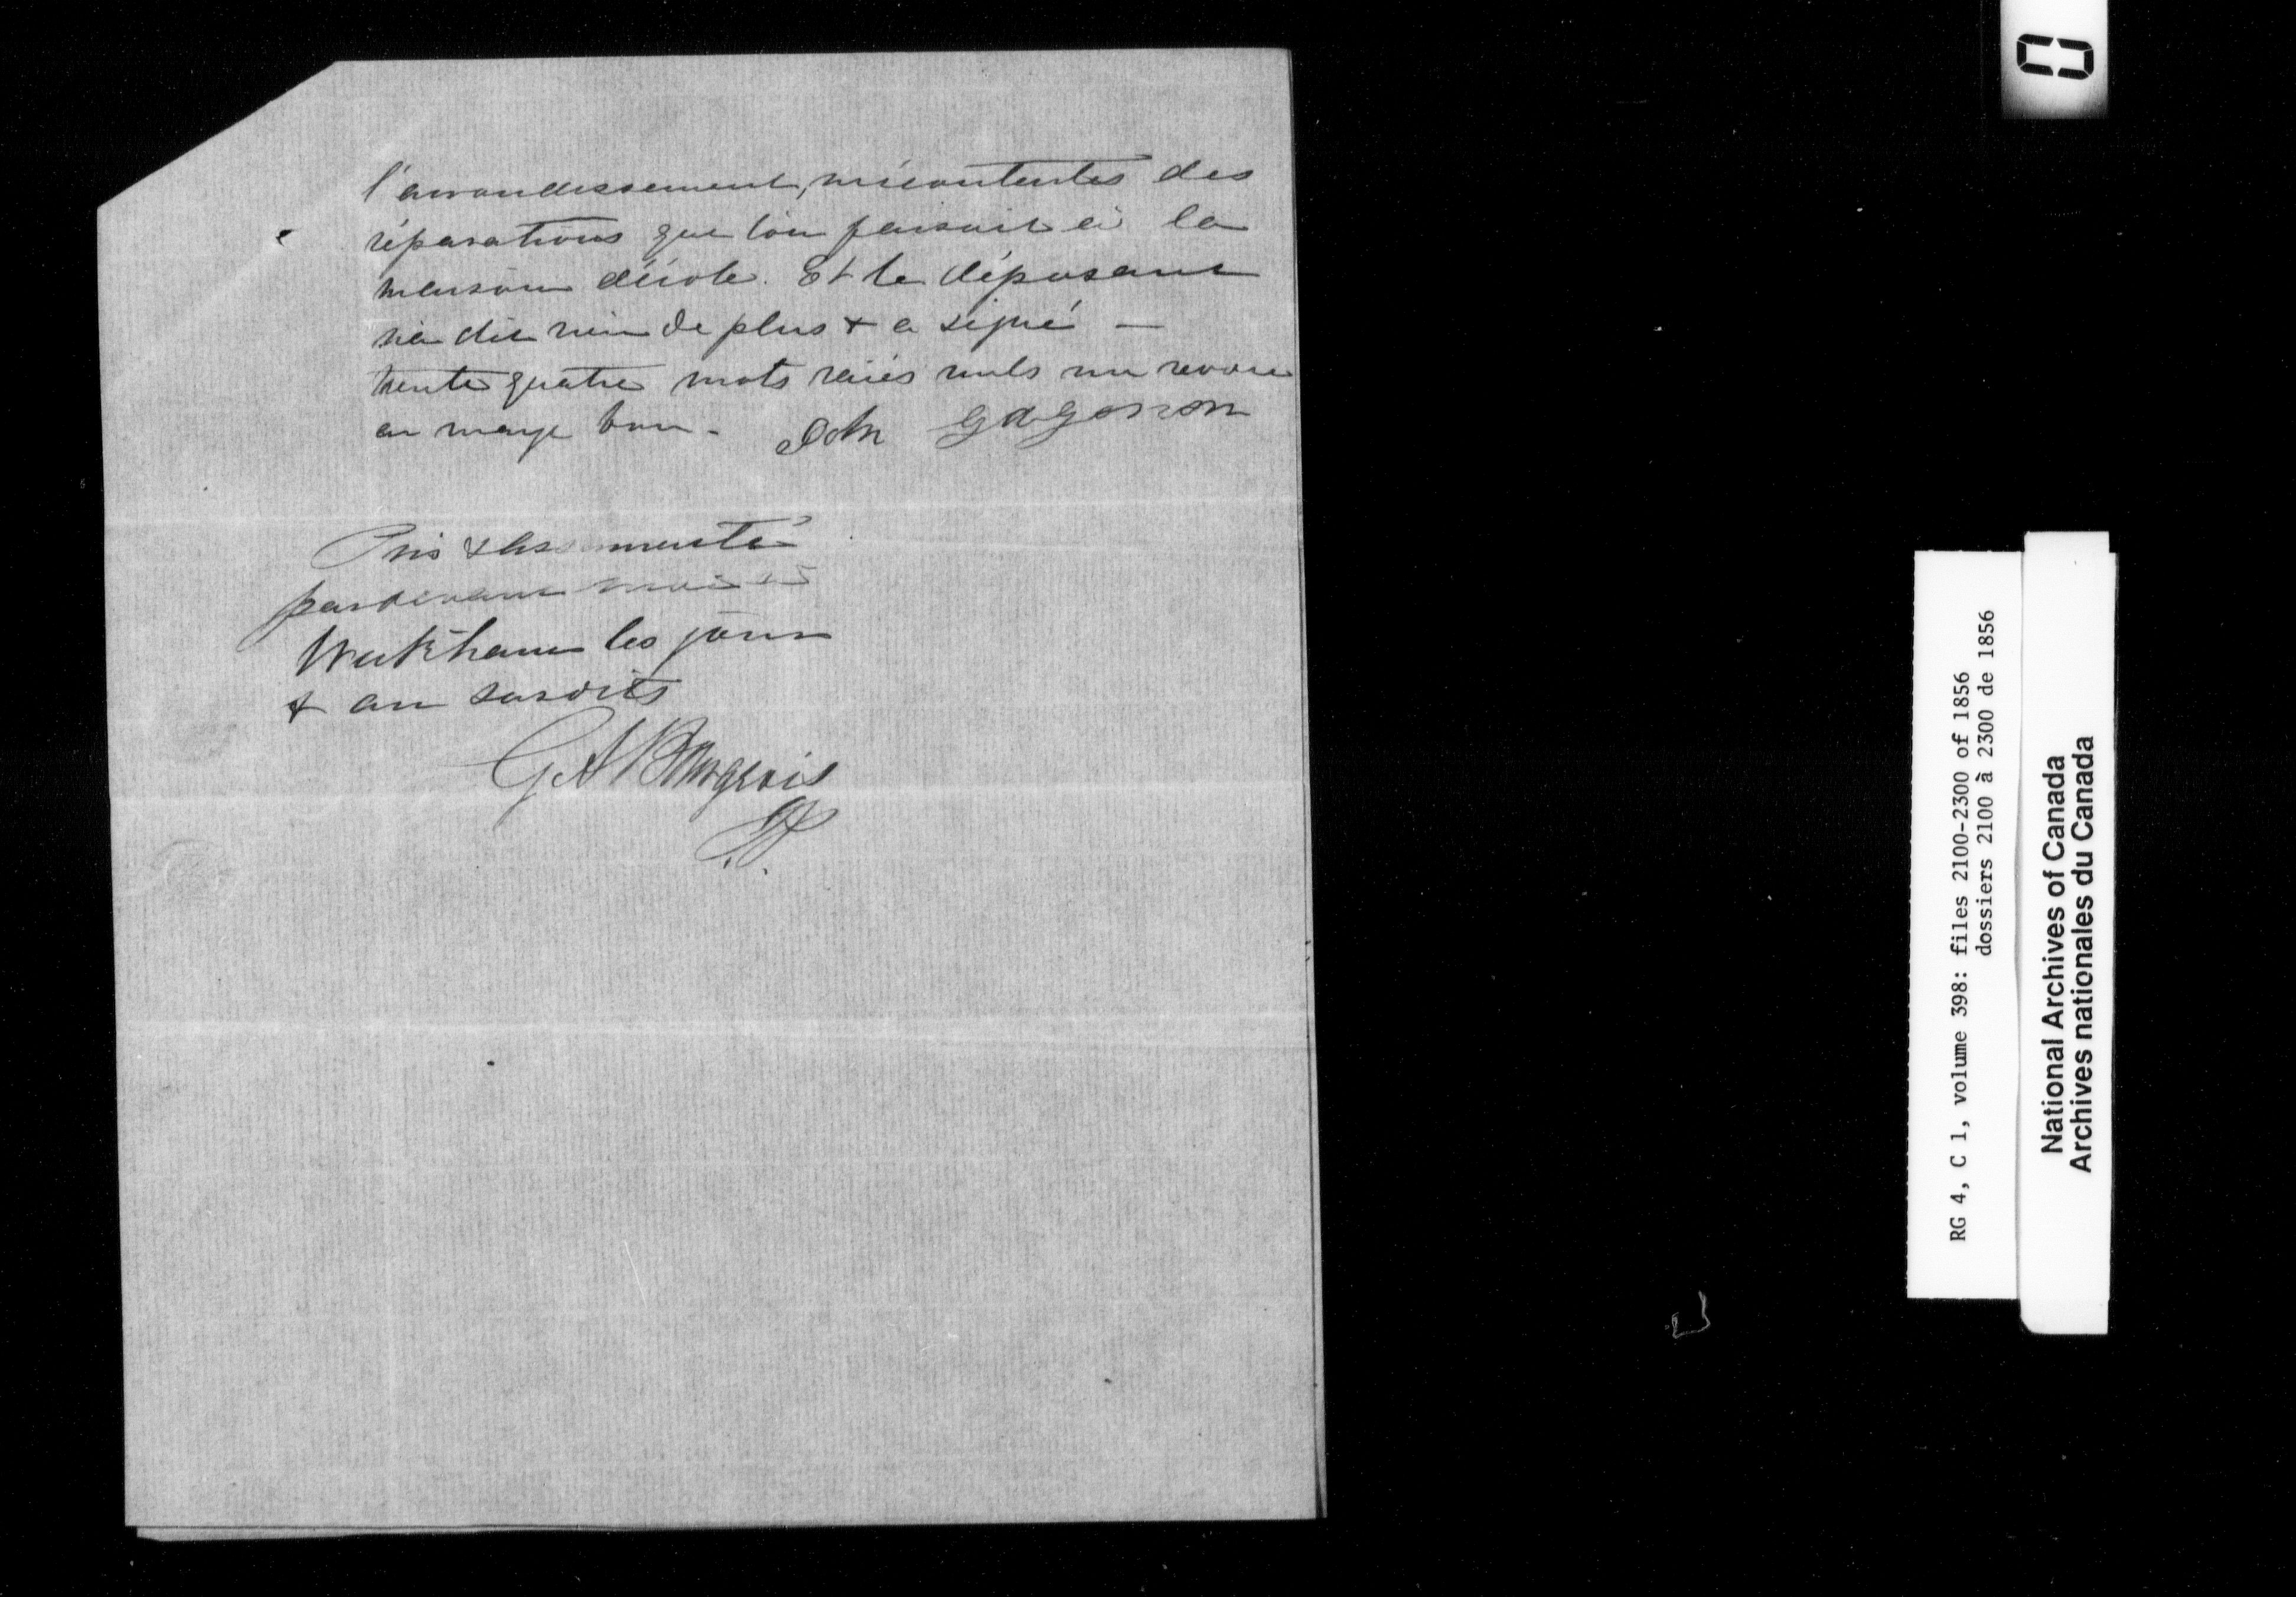 l'arrondissement, mécontentes des
réparations que l'on faisait à la
maison d'école. Et le déposant
n'a dit rien de plus & a signé —
trente quatre mots raiés nuls un renvoi
en marge bon -
Gagnon
Pris & assermenté
pardevant moi à
Wickham les jour
& an susdits
G A Bourgeois
J.P.
RG 4, C 1, volume 398: files 2100-2300 of 1856
dossiers 2100 à 2300 de 1856
National Archives of Canada
Archives nationales du Canada